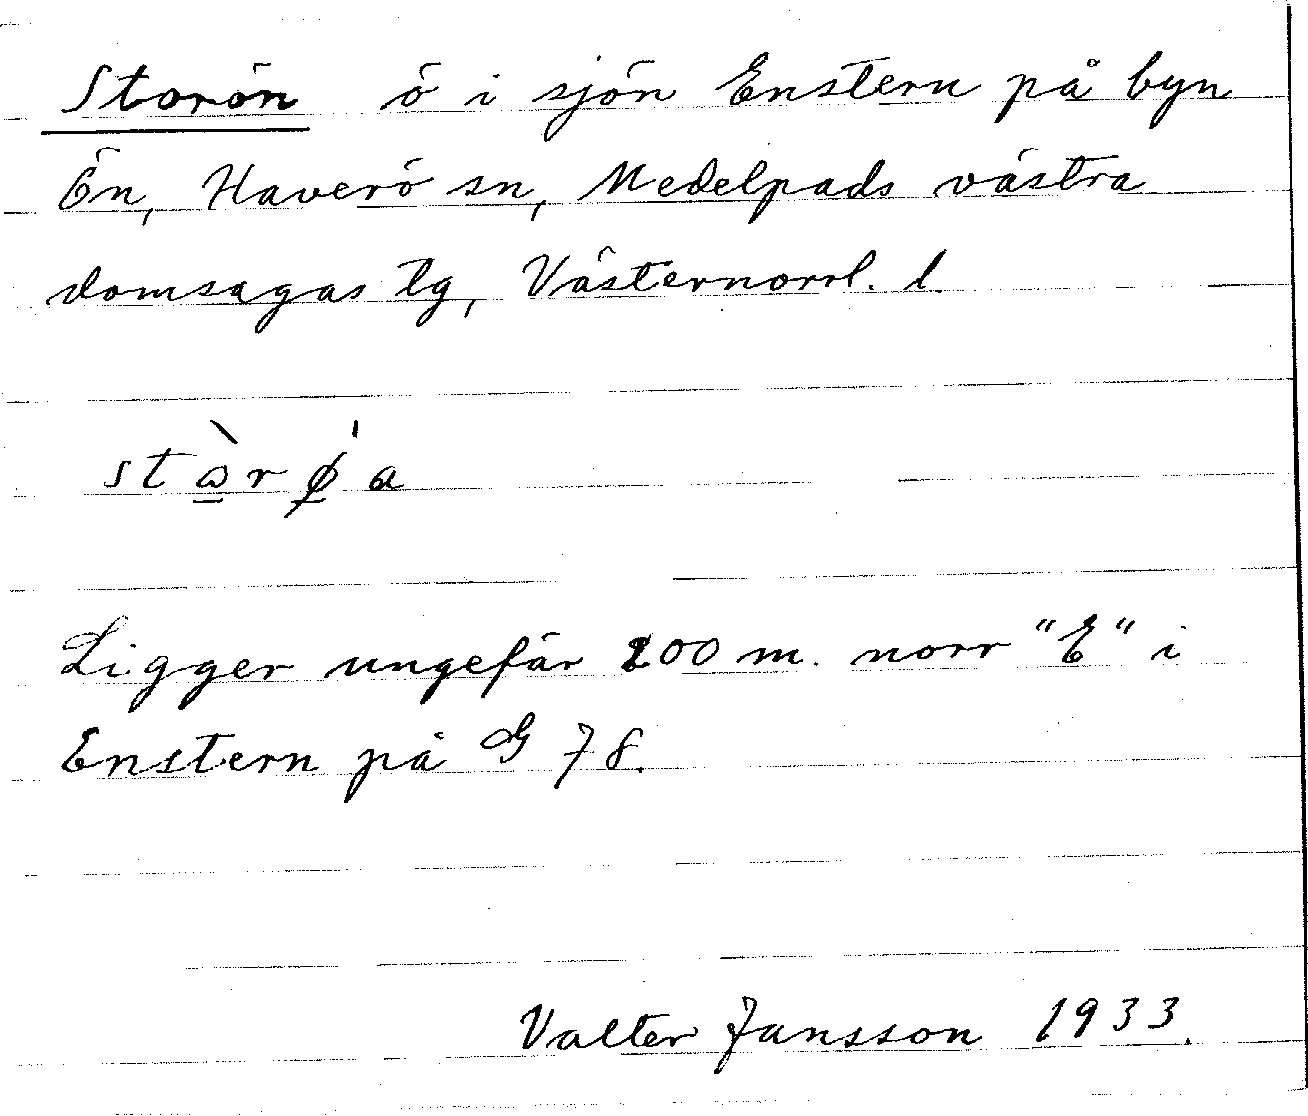 Storön ö i sjön Enstern på byn
Ön, Haverö sn, Medelpads västra
domsagas tg, Västernorrl. l.
stɷ̠̀rǿ̠a
Ligger ungefär 200 m. norr "E" i
Enstern på G 78.
Valter Jansson 1933.